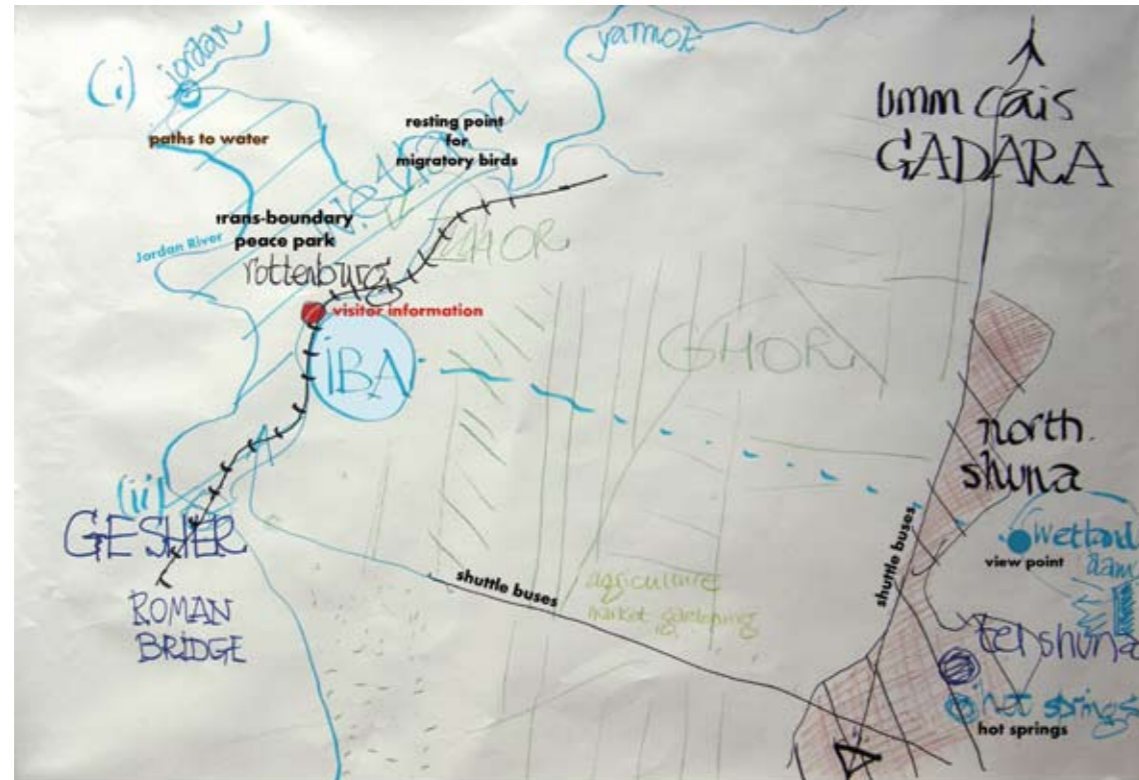 (i)
jordan
yarmok
paths to water
wetland
resting point
for
migratory birds
umm cais
GADARA
trans-boundary
peace park
Jordan River
rottenburg
ZHOR
visitor information
IBA
GHOR
north.
shuna
(ii)
GESHER
ROMAN
BRIDGE
shuttle buses
agriculture
market gardening
shuttle buses
wetland
view point
dam
tel shuna
hot springs
hot springs